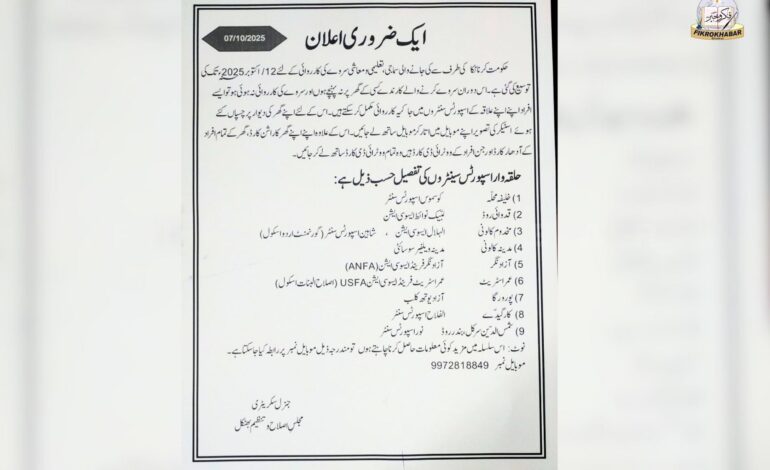 فکروخبر
FIKROKHABAR
07/10/2025
ایک ضروری اعلان
حکومت کرناٹکا کی طرف سے کی جانے والی سماجی، تعلیمی و معاشی سروے کی کارروائی کے لئے 12/ اکتوبر 2025، تک کی
توسیع کی گئی ہے۔ اس دوران سروے کرنے والے کارندے کسی کے گھر پر نہ پہنچے ہوں اور سروے کی کارروائی نہ ہوئی ہو تو ایسے
افراد اپنے اپنے علاقہ کے اسپورٹس سنٹروں میں جا کر یہ کارروائی مکمل کر سکتے ہیں۔ اس کے لئے اپنے گھر کی دیوار پر چسپاں کئے
ہوئے اسٹیکر کی تصویر اپنے موبائیل میں اتار کر موبائیل ساتھ لے جائیں۔ اس کے علاوہ اپنے اپنے گھر کا راشن کارڈ، گھر کے تمام افراد
کے آدھار کارڈ اور جن افراد کے ووٹر آئی ڈی کارڈ ہیں وہ تمام ووٹر آئی ڈی کارڈ ساتھ لے کر جائیں۔
حلقہ وار اسپورٹس سینٹروں کی تفصیل حسب ذیل ہے:
1) خلیفہ محلّہ کوسموس اسپورٹس سنٹر
2) قدوائی روڈ لبیک نوائط ایسوسی ایشن
3) مخدوم کالونی الہلال ایسوسی ایشن ، شاہین اسپورٹس سنٹر (گورنمنٹ اردو اسکول)
4) مدینہ کالونی مدینہ ویلفیر سوسائٹی
5) آزاد نگر آزاد نگر فرینڈ ایسوسی ایشن (ANFA)
6) عمر اسٹریٹ عمر اسٹریٹ فرینڈ ایسوسی ایشن USFA (اصلاح البنات اسکول)
7) پورورگا آزاد یوتھ کلب
8) کارگیدّے الفلاح اسپورٹس سنٹر
9) شمس الدّین سرکل، بندر روڈ نور اسپورٹس سنٹر
نوٹ: اس سلسلہ میں مزید کوئی معلومات حاصل کرنا چاہتے ہوں تو مندرجہ ذیل موبائیل نمبر پر رابطہ کیا جا سکتا ہے۔
موبائل نمبر 9972818849
جنرل سکریٹری
مجلس اصلاح و تنظیم بھٹکل